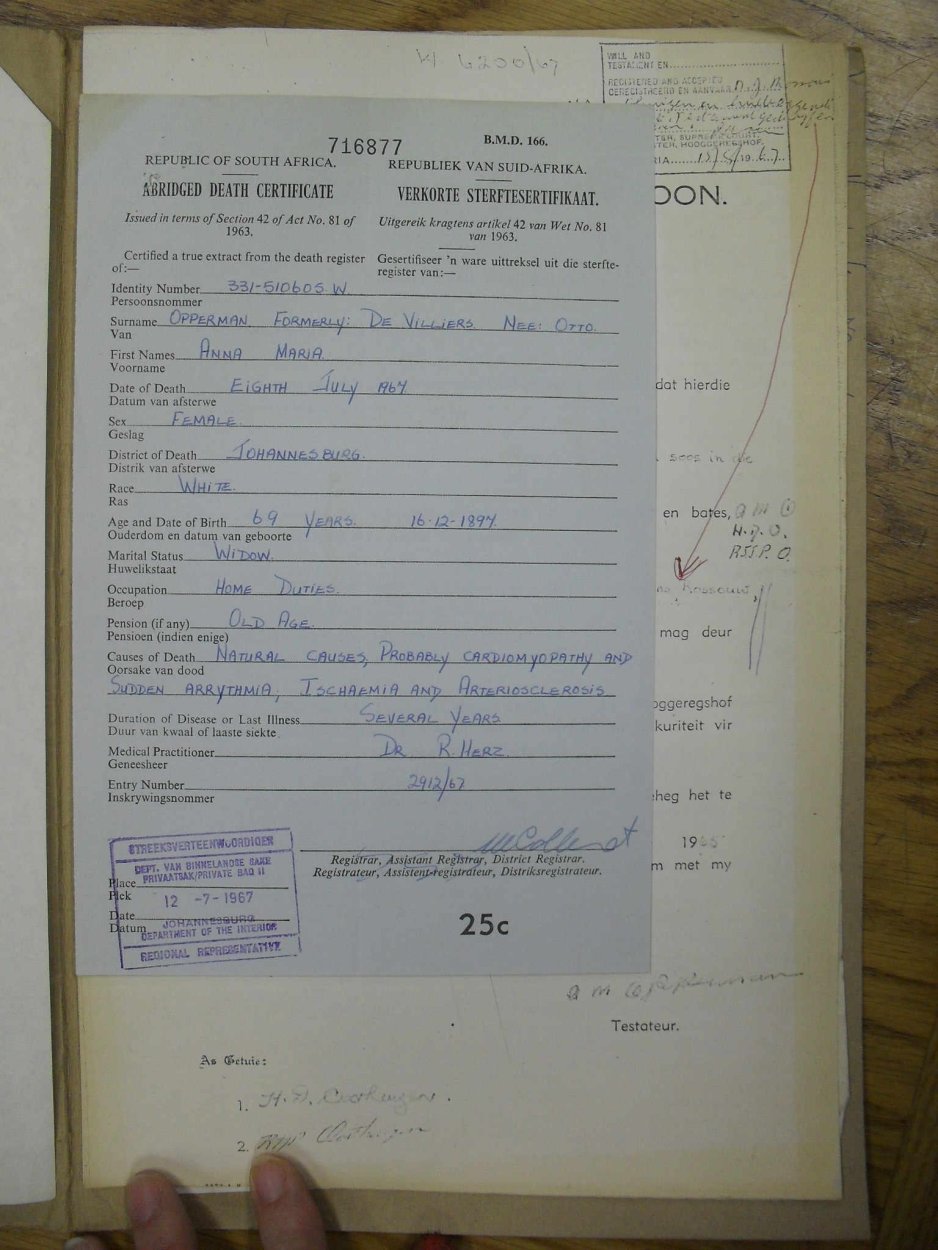 6200/67
WILL AND
TESTAMENT EN
REGISTERED AND ACCEPTED
GEREGISTREER EN AANVAAR
HOOGGEREGSHOF.
716877
B.M.D. 166.
REPUBLIC OF SOUTH AFRICA.
REPUBLIEK VAN SUID-AFRIKA.
ABRIDGED DEATH CERTIFICATE
VERKORTE STERFTESERTIFIKAAT.
Issued in terms of Section 42 of Act No. 81 of
1963.
Uitgereik kragtens artikel 42 van Wet No. 81
van 1963.
Certified a true extract from the death register
of:—
Gesertifiseer 'n ware uittreksel uit die sterfte-
register van:—
Identity Number 331-510605 W
Persoonsnommer
Surname OPPERMAN. FORMERLY: DE VILLIERS. NEE: OTTO.
Van
First Names ANNA MARIA
Voorname
Date of Death EIGHTH JULY 1967
Datum van afsterwe
Sex FEMALE.
Geslag
District of Death JOHANNESBURG.
Distrik van afsterwe
Race WHITE.
Ras
Age and Date of Birth 69 YEARS. 16-12-1897
Ouderdom en datum van geboorte
Marital Status WIDOW.
Huwelikstaat
Occupation HOME DUTIES.
Beroep
Pension (if any) OLD AGE.
Pensioen (indien enige)
Causes of Death NATURAL CAUSES, PROBABLY CARDIOMYOPATHY AND
Oorsake van dood
SUDDEN ARRYTHMIA; ISCHAEMIA AND ARTERIOSCLEROSIS
Duration of Disease or Last Illness SEVERAL YEARS
Duur van kwaal of laaste siekte
Medical Practitioner DR R. HERZ.
Geneesheer
Entry Number 2912/67
Inskrywingsnommer
Registrar, Assistant Registrar, District Registrar.
Registrateur, Assistent-registrateur, Distriksregistrateur.
STREEKSVERTEENWOORDIGER
DEPT. VAN BINNELANDSE SAKE
PRIVAATSAK/PRIVATE BAG 11
Place
Plek
12 -7-1967
Date
Datum
JOHANNESBURG
DEPARTMENT OF THE INTERIOR
REGIONAL REPRESENTATIVE
25c
OON.
dat hierdie
soos in die
en bates,
A M O
H.D.O.
mag deur
oggeregshof
kuriteit vir
eheg het te
19
m met my
A M Opperman
Testateur.
As Getuie:
1. H. D.
2.